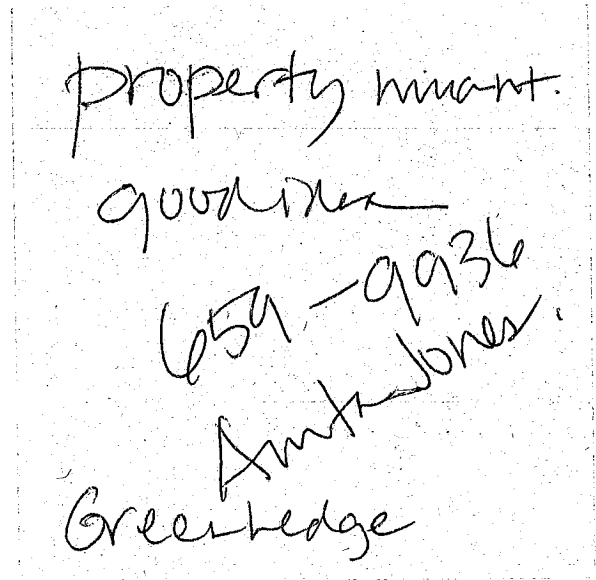 property mmant.
good idea
659-9936
Anita Jones.
Greenhedge